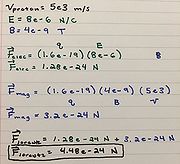 Vproton = 5e3 m/s
E = 8e-6 N/C
B = 4e-9 T
q E
F⃗elec = (1.6e-19)(8e-6) B
F⃗elec = 1.28e-24 N
q B v
F⃗mag = (1.6e-19)(4e-9)(5e3)
F⃗mag = 3.2e-24 N
F⃗Lorentz = 1.28e-24 N + 3.2e-24 N
F⃗Lorentz = 4.48e-24 N